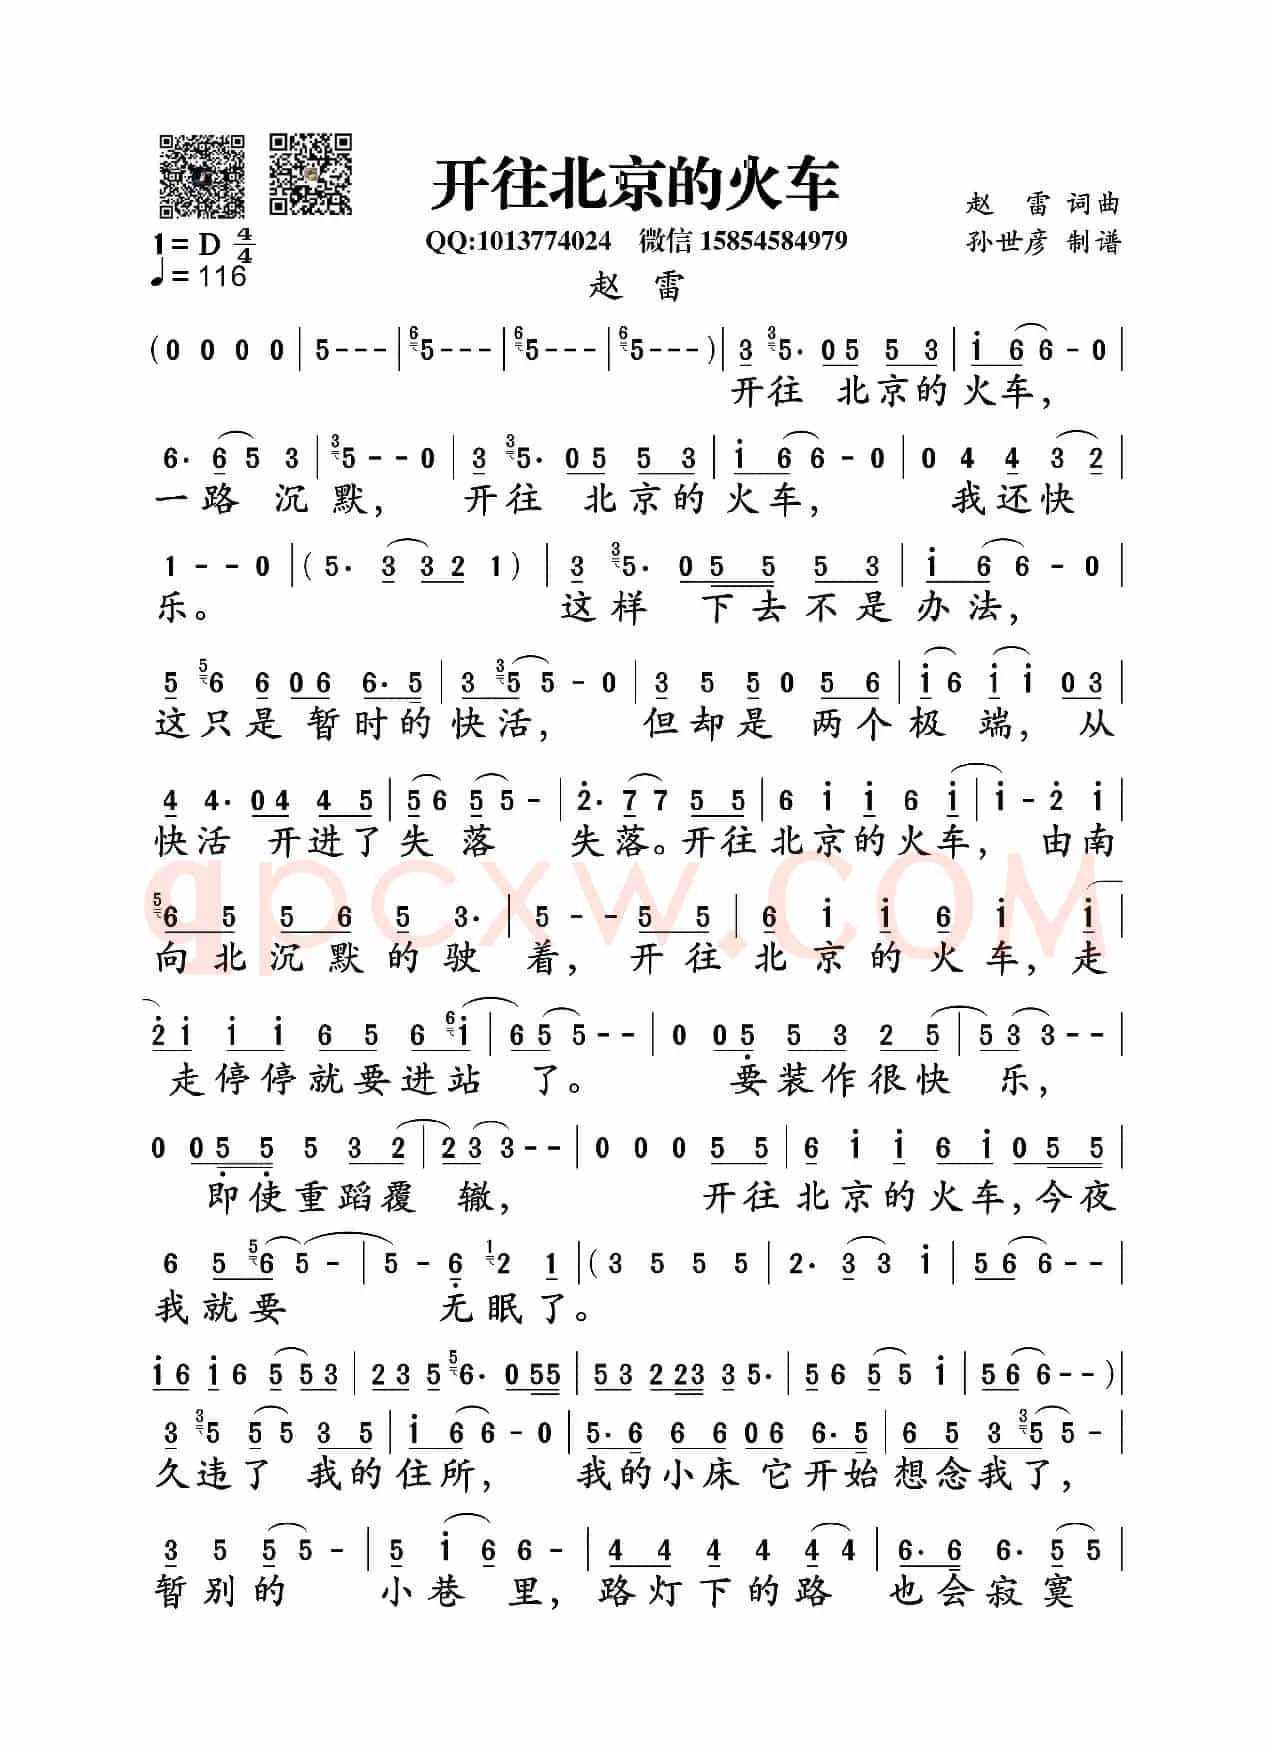 开往北京的火车
赵 雷 词曲
1=D 4/4
QQ:1013774024 微信 15854584979
孙世彦 制谱
♩=116
赵 雷
(0 0 0 0 | 5--- | 6 5--- | 6 5--- | 6 5---) | 3 3 5· 05 5 3 | i 6 6 - 0 |
开往 北京的火车，
6· 6 5 3 | 3 5 - - 0 | 3 3 5· 05 5 3 | i 6 6 - 0 | 0 4 4 3 2 |
一路 沉默， 开往 北京的火车， 我还快
1 - - 0 | (5· 3 32 1) | 3 3 5· 0 5 5 5 3 | i 6 6 - 0 |
乐。 这样 下去不是办法，
5 5 6 6 06 6·5 | 3 3 5 5 - 0 | 3 5 5 0 5 6 | i 6 i i 03 |
这只是暂时的快活， 但却是 两个极端，从
4 4· 04 4 5 | 5 6 5 5 - | 2· 7 7 5 5 | 6 i i 6 i | i - 2 i |
快活 开进了失落 失落。开往北京的火车， 由南
5 6 5 5 6 5 3· | 5 - - 5 5 | 6 i i 6 i i |
向北沉默的驶 着，开往北京的火车，走
2 i i i 6 5 6 6 i | 6 5 5 - - | 0 0 5 5 3 2 5 | 5 3 3 - - |
走停停就要进站 了。 要装作很快 乐，
0 0 5 5 5 3 2 | 2 3 3 - - | 0 0 0 5 5 | 6 i i 6 i 0 5 5 |
即使重蹈覆 辙， 开往北京的火车，今夜
6 5 5 6 5 - | 5 - 6 1 2 1 | (3 5 5 5 | 2· 3 3 i | 5 6 6 - - |
我就要 无眠了。
i 6 i 6 5 5 3 | 2 3 5 5 6· 0 55 | 5 3 2 23 3 5· | 5 6 5 5 i | 5 6 6 - -) |
3 3 5 5 5 3 5 | i 6 6 - 0 | 5· 6 6 6 0 6 6· 5 | 6 5 3 3 5 5 - |
久违了 我的住所， 我的小床它开始想念我了，
3 5 5 5 - | 5 i 6 6 - | 4 4 4 4 4 4 | 6· 6 6· 5 5 |
暂别的 小巷里，路灯下的路 也会寂寞
qpcxw.COM